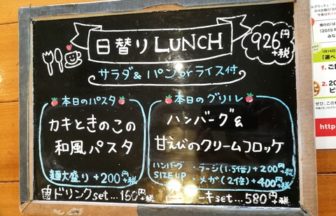 日替りLUNCH
926円
+税
サラダ&パンorライス付
本日のパスタ
カキときのこの
和風パスタ
麺大盛り +200円+税
本日のグリル
ハンバーグ&
甘えびのクリームコロッケ
ハンバーグ
SIZE UP
ラージ(1.5倍)+200円+税
メガ(2倍)+400円+税
ドリンクset…160円+税
ーキset…580円+税
http